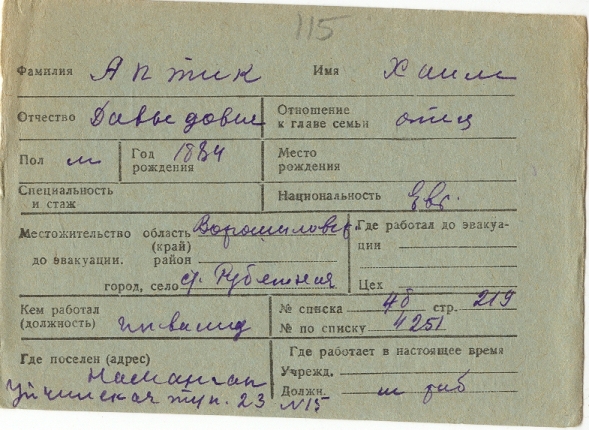 115
Фамилия Аптик Имя Хаим
Отчество Давыдович Отношение к главе семьи отец
Пол м Год рождения 1884 Место рождения
Специальность и стаж Национальность Евр.
Местожительство область Ворошиловгр. Где работал до эвакуа-
(край) ции
до эвакуации. район
город, село Рубежная Цех
Кем работал № списка 46 стр. 219
(должность) инвалид № по списку 4251
Где поселен (адрес) Где работает в настоящее время
Наманган Учрежд.
Уйчинская туп. 23 N15 Должн.